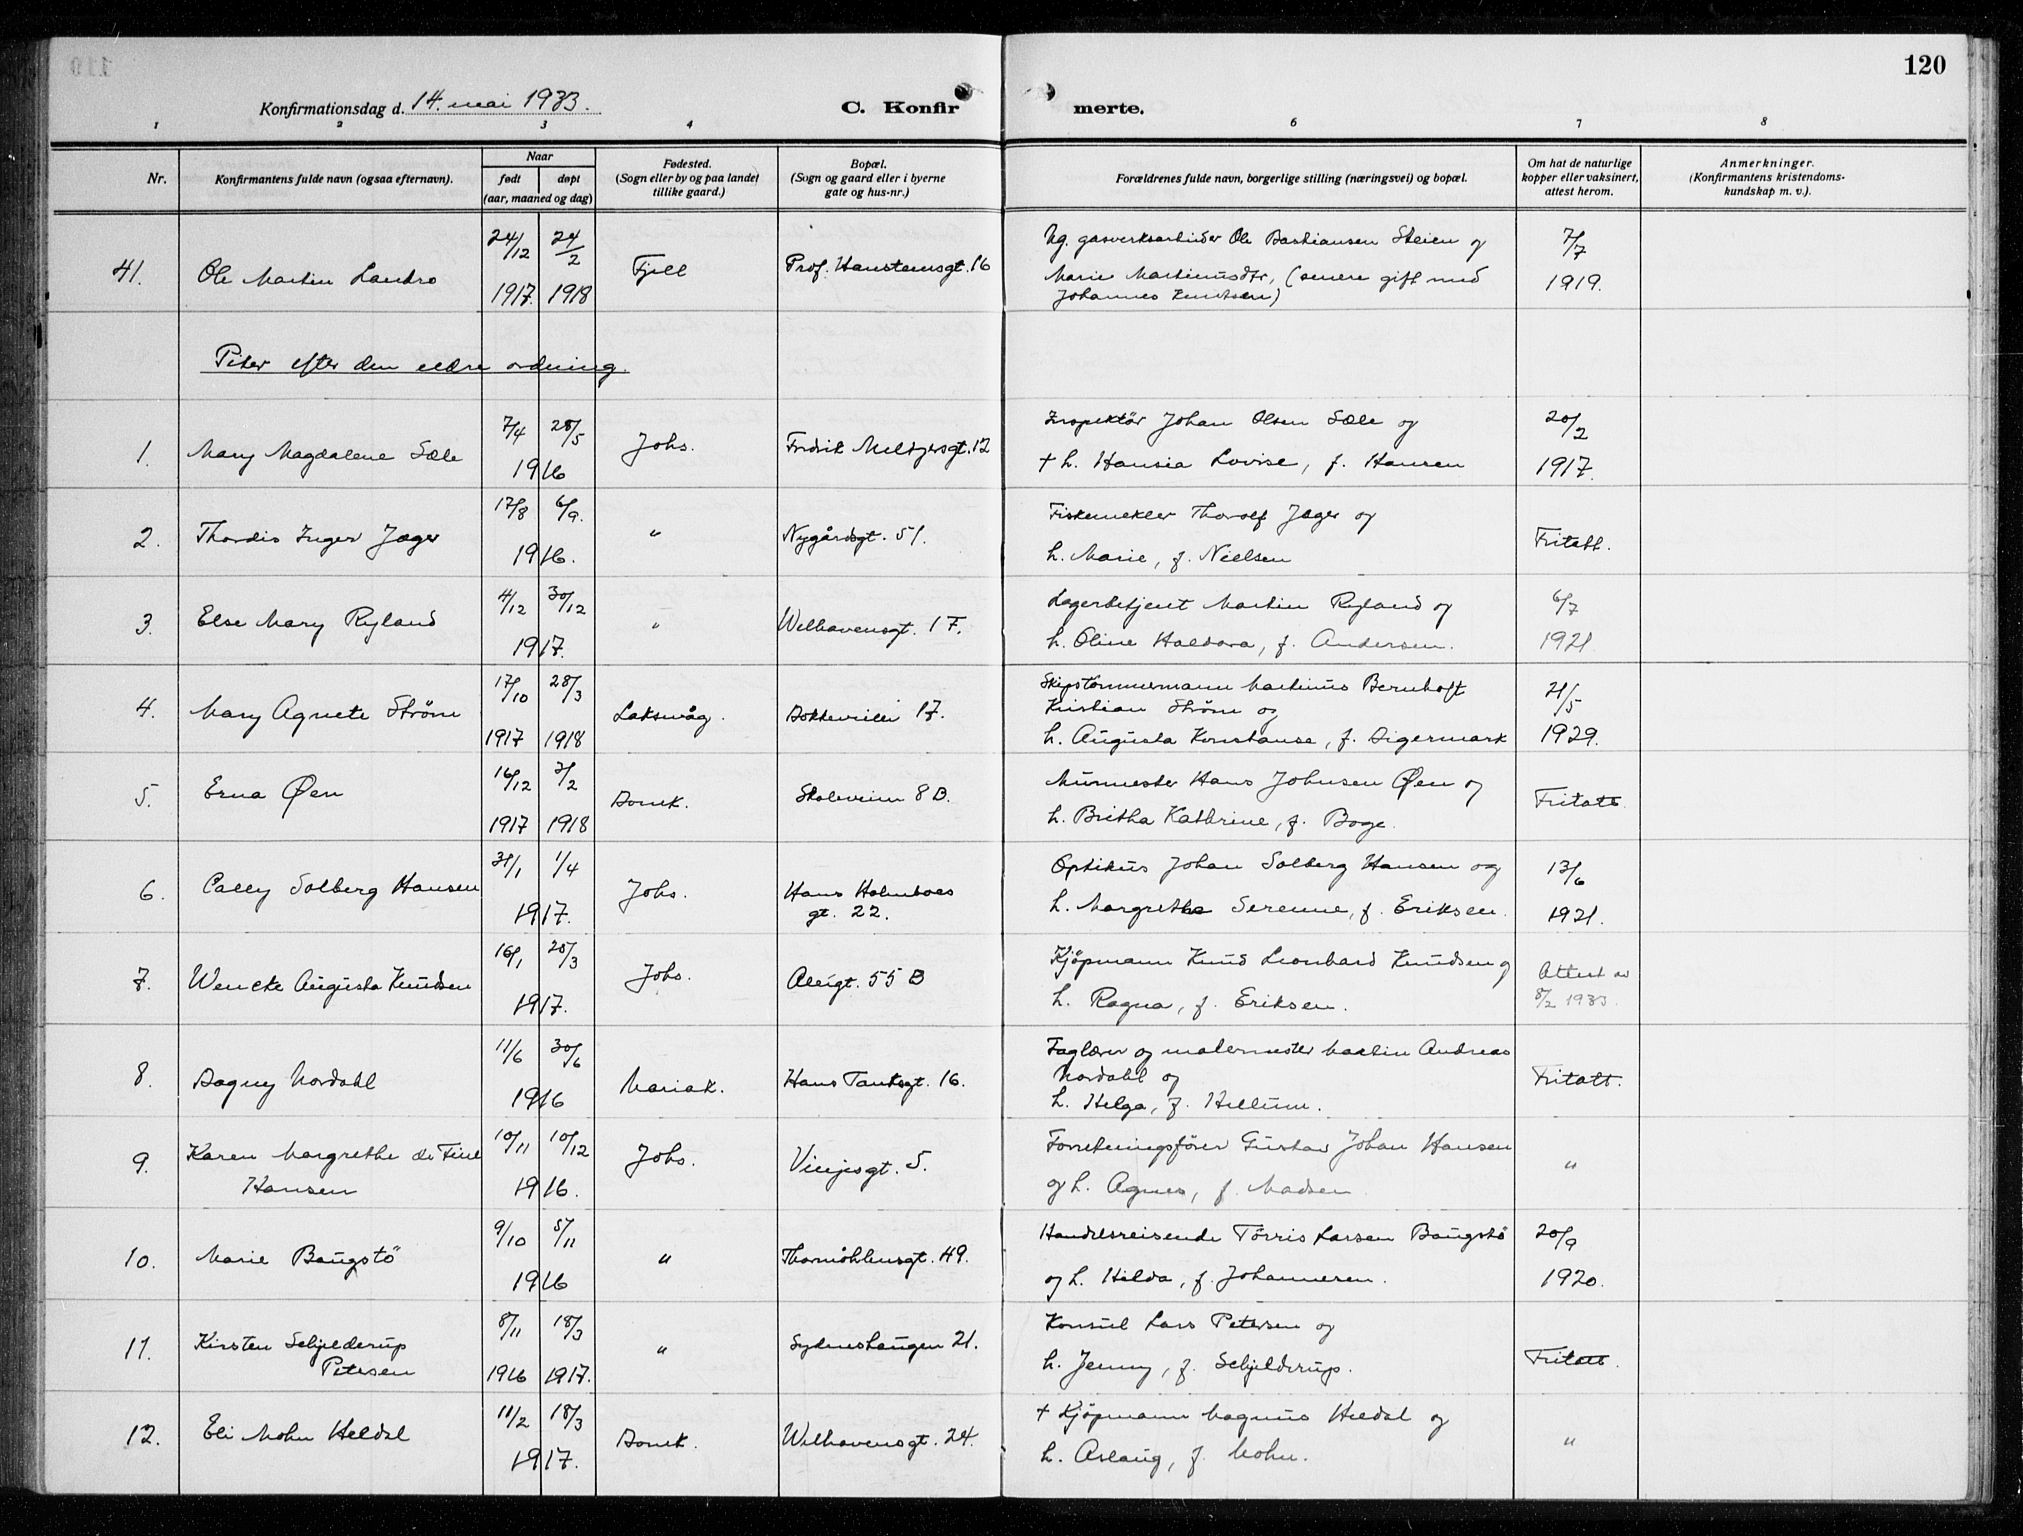 120
Konfirmationsdag d. 14. mai 1933. C. Konfir merte.
1 2 3 4 6 7 8
Nr. Konfirmantens fulde navn (ogsaa efternavn). Naar født døpt (aar, maaned og dag) Fødested. (Sogn eller by og paa landet tillike gaard.) Bopæl. (Sogn og gaard eller i byerne gate og hus-nr.) Forældrenes fulde navn, borgerlige stilling (næringsvei) og bopæl. Om hat de naturlige kopper eller vaksinert, attest herom. Anmerkninger. (Konfirmantens kristendoms-kundskap m. v.).
24/12 24/2 Ug. gasverksarbeider Ole Bastiansen Steien og 7/7
41. Ole Martin Landro 1917. 1918 Fjell Prof. Hansteensgt. 16 Marie Martinusdtr, (senere gift med 1919.
Johannes Knutsen)
Piker efter den eldre ordning.
7/4 28/5 Inspektør Johan Olsen Sæle og 20/2
1. Mary Magdalene Sæle 1916 Johs. Fredrik Meltzersgt. 12 + h. Hansia Lovise, f. Hansen 1917.
17/8 6/9. Fiskemekler Thorolf Jæger og
2. Thordis Inger Jæger 1916. " Nygårdsgt. 51. h. Marie, f. Nielsen Fritatt.
4/12 30/12 Lagerbetjent Martin Ryland og 6/7
3. Else Mary Ryland 1917. " Welhavensgt. 17. h. Oline Haldora, f. Andersen. 1921
17/10 28/3 Skipstømmermann Martinus Bernhoft 21/5
4. Mary Agnete Strøm Laksevåg. Dokkeveien 17. Kristian Strøm og
1917 1918 h. Augusta Konstanse, f. Digermark 1929.
16/12 3/2 Murmester Hans Johnsen Øen og
5. Erna Øen 1917 1918 Domk. Skoleveien 8 B. h. Britha Kathrine, f. Boge. Fritatt.
31/1 1/4 Optikus Johan Solberg Hansen og 13/6
6. Cally Solberg Hansen 1917. Johs. Hans Holmboes gt. 22. h. Margrethe Serenne, f. Eriksen. 1921.
16/1 20/3 Kjøpmann Knud Leonhard Knudsen og Attest av
7. Wencke Augusta Knudsen 1917. Johs. Allégt. 55 B h. Ragna, f. Eriksen. 8/2 1933.
11/6 30/6 Faglærer og malermester Martin Andreas
8. Dagny Nordahl 1916 Mariak. Hans Tanksgt. 16. Nordahl og Fritatt.
h. Helga, f. Hellum.
10/11 10/12 Forretningsfører Gustav Johan Hansen
9. Karen Margrethe de Fine Hansen 1916. Johs. Vinjesgt. 5. og h. Agnes, f. Madsen "
9/10 5/11 Handelsreisende Tørris Larsen Baugstö 20/9
10. Marie Baugstö 1916 " Thormøhlensgt. 49. og h. Hilda, f. Johannesen. 1920.
8/11 18/3 Konsul Lars Petersen og
11. Kirsten Schjelderup Petersen 1916 1917. " Sydneshaugen 21. h. Jenny, f. Schjelderup. Fritatt.
11/2 18/3 + Kjøpmann Magnus Heldal og
12. Eli Mohn Heldal 1917. Domk. Welhavensgt. 24. h. Aslaug, f. Mohn. "